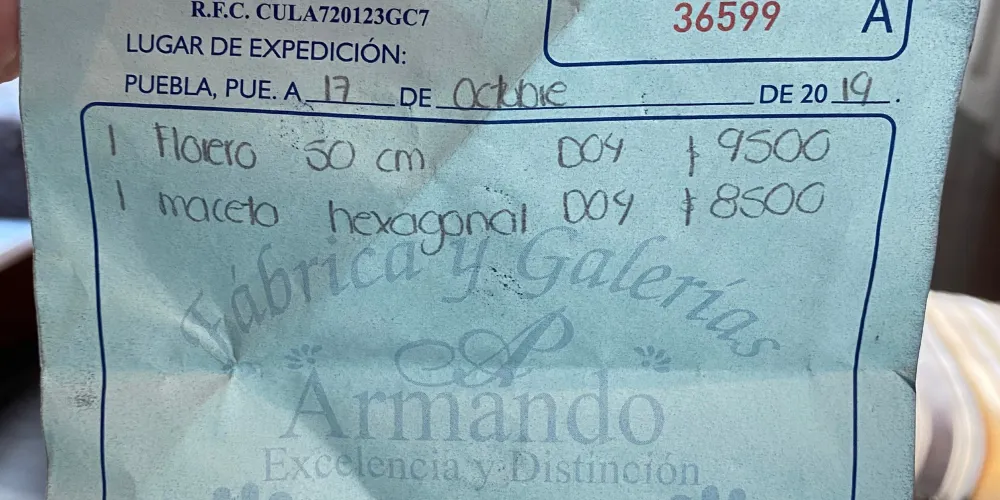 R.F.C. CULA720123GC7
36599 A
LUGAR DE EXPEDICIÓN:
PUEBLA, PUE. A 17 DE Octubre DE 2019.
1 Florero 50 cm D04 $ 9500
1 maceta hexagonal D04 $ 8500
Fábrica y Galerías
A
Armando
Excelencia y Distinción